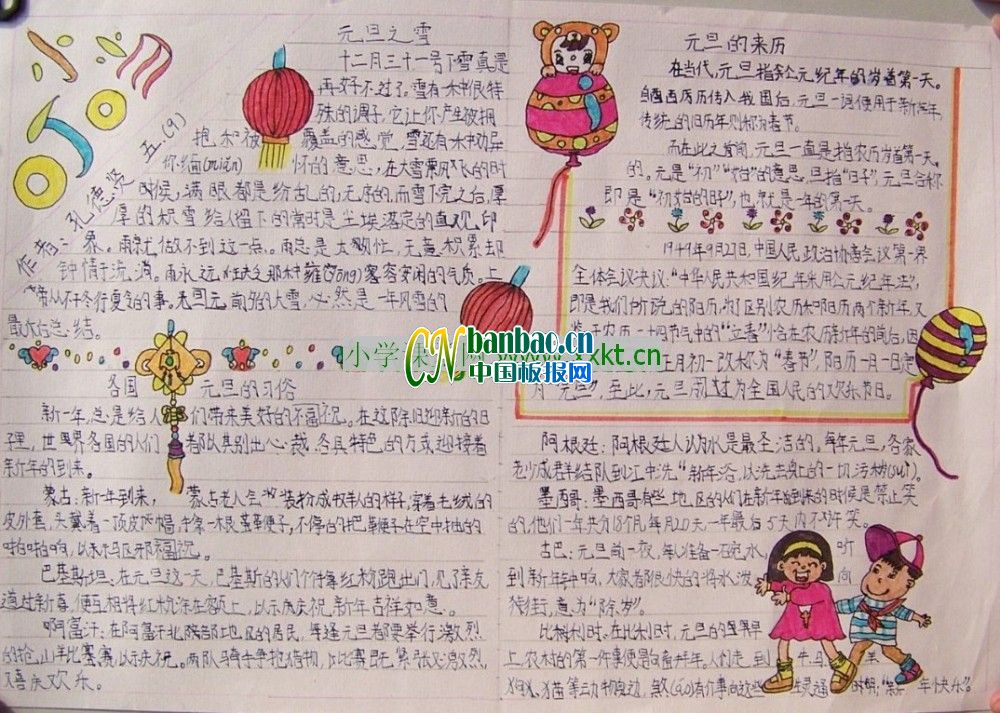 五.(9)
作者:孔德贤
元旦之雪
十二月三十一号下雪真是
再好不过了,雪有一种很特
殊的调子,它让你产生被拥
抱和被覆盖的感觉,雪还有一种劝异
你缅(miǎn)怀的意思,在大雪乘风飞长的时
时候,满眼都是纷乱的,无序的,而雪下完之后,厚
厚的积雪给人留下的常时是尘埃落定的直观印
象。雨就做不到这一点。雨总是太匆忙,无意积累却
钟情于流淌。雨永远缺乏那种雍(yōng)容安闲的气质。上
帝从不冬行夏令的事。来回元旦前夕的大雪,必然是一年风雪的
最水总结。
各国元旦的习俗
新一年,总是给人们带来美好的不福祝。在这除旧迎新的日
子里,世界各国的人们都以其别出心裁、各具特色的方式迎接着
新年的到来。
蒙古:新年到来,蒙古老人会装扮成牧羊人的样子,穿着毛绒的
皮外套,头戴着一顶皮帽,手拿一根羊鞭子,不停的把鞭子在空中抽的
啪啪响,以示驱邪福祝。
巴基斯坦:在元旦这一天,巴基斯的人们个个拿红粉跑出门,见了亲友
道过新喜,便互相将红粉涂在额上,以示庆祝新年吉祥如意。
啊富汗:在阿富汗北陪部地区的居民,每逢元旦都要举行激烈
的抢山羊比赛赛,以示庆祝。两队骑手争抢猎物,比赛既紧张又激烈,
又喜庆欢乐。
元旦的来历
在当代,元旦指公元纪年的岁首第一天。
自西历传入我国后,元旦一词便用于新年,
传统的旧历年则称为春节。
而在此之前,元旦一直是指农历岁首第一天
的。元是“初”“始”的意思,旦指“日子”,元旦合称
即是“初始的日子”,也就是一年的第一天。
1949年9月27日,中国人民政治协商会议第一界
全体会议决议:“中华人民共和国纪年采用公元纪年法”,
即是我们所说的阳历,为了区别农历和阳历两个新年,又
鉴于农历二十四节气中的“立春”恰在农历新年的前后,因
正月初一改称为“春节”,阳历一月一日定
为“元旦”,至此,元旦成为全国人民的欢乐节日。
阿根廷:阿根廷人认为水是最圣洁的。每年元旦,各家
老少成群结队到江中洗“新年浴,以洗去身上的一切污秽(suì)。
墨西哥:墨西哥有些地区的人们在新年到来的时候是禁止笑
的,他们一年共为18个月,每月20天,一年最后5天内不许笑。
古巴:元旦前一夜,每人准备一碗水,听
到新年钟响,大家都很快的将水泼向
街,意为“除岁”。
比利时:在比利时,元旦的早早
上,农村的第一件事便是向畜拜年,人们走到牛、马、羊
狗、猫等动物身边,煞(shà)有介事向这些生灵通时明:“新年快乐”。
CN banbao.cn
中国板报网
小学课 xkt.cn